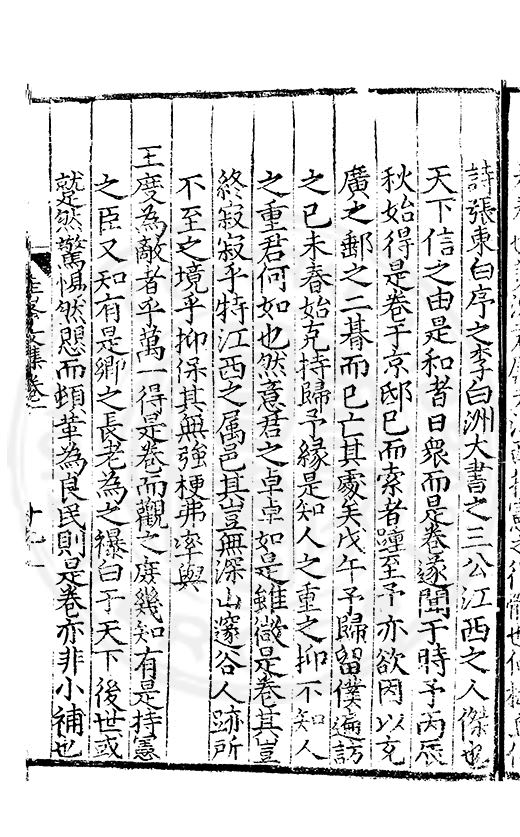 詩張東白序之李白洲大書之三公江西之人傑也
天下信之由是和者日衆而是卷遂聞于時予丙辰
秋始得是卷于京邸已而索者踵至予亦欲因以充
廣之郵之二碁而已亡其處矣戊午予歸留僕遍訪
之已未春始克持歸予緣是知人之重之抑不知人
之重君何如也然意君之卓卓如是雖微是卷其豈
終寂寂乎特江西之属邑其豈無深山邃谷人跡所
不至之境乎抑保其無強梗弗率與
王度為敵者乎萬一得是卷而觀之庻幾知有是持憲
之臣又知有是鄉之長老為之襮白于天下後世或
蹵然驚惕然愳而頓革為良民則是卷亦非小補也
文集卷
十九